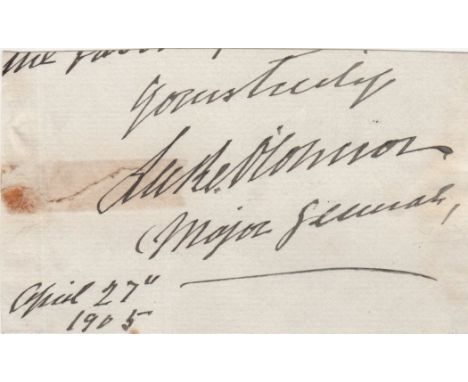 the
Yours truly
Luke O'Connor
Major General,
April 27"
1905